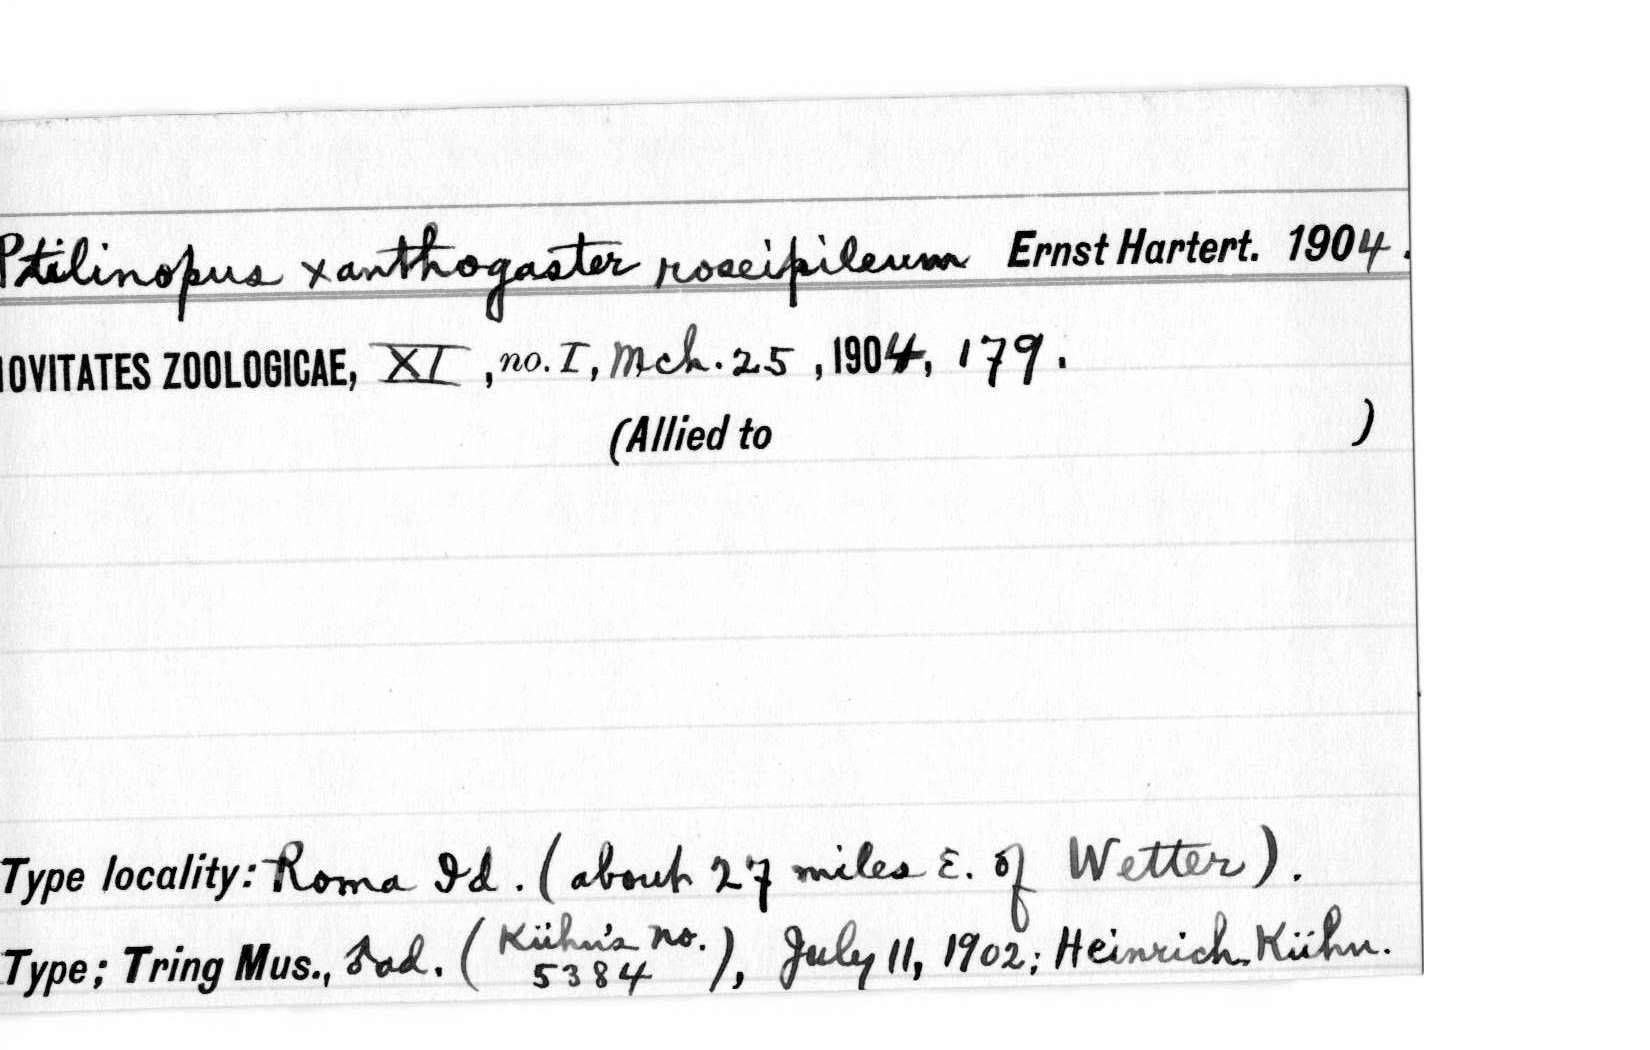 Ptilinopus xanthogaster roseipileum Ernst Hartert. 1904.
NOVITATES ZOOLOGICAE, XI, no. I, Mch. 25, 1904, 179.
(Allied to )
Type locality: Roma Id. (about 27 miles E. of Wetter).
Type; Tring Mus., ad. (Kühn's no. 5384), July 11, 1902; Heinrich Kühn.